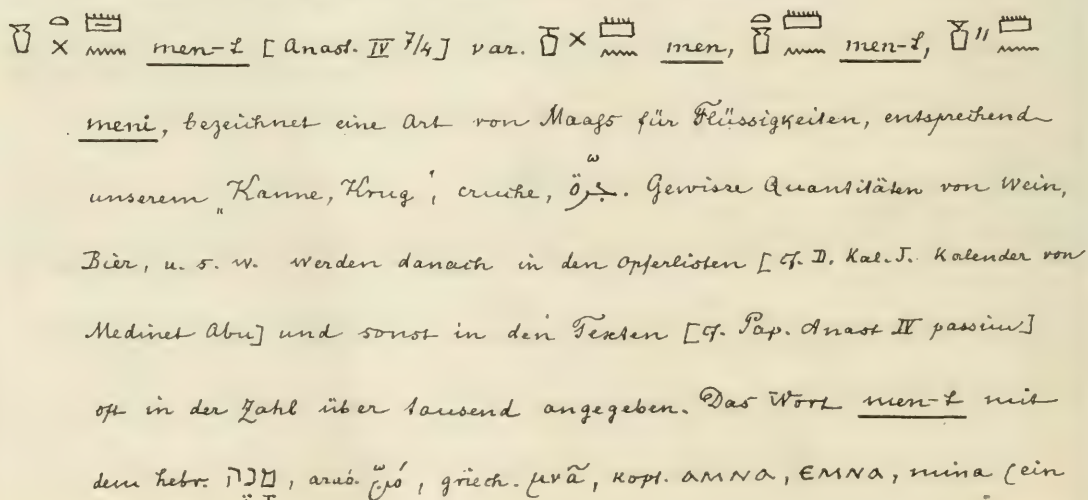 men-t [Anast. IV 7/4] var. men, men-t,
meni, bezeichnet eine Art von Maaß für Flüssigkeiten, entsprechend
unserem „Kanne, Krug“, cruche, جرة. Gewisse Quantitäten von Wein,
Bier, u. s. w. werden danach in den Opferlisten [cf. D. Kal. I. Kalender von
Medinet Abu] und sonst in den Texten [cf. Pap. Anast IV passim]
oft in der Zahl über tausend angegeben. Das Wort men-t mit
dem hebr. מנה, arab. مَنّ, griech. μνᾶ, kopt. ⲁⲙⲛⲁ, ⲉⲙⲛⲁ, mina (ein